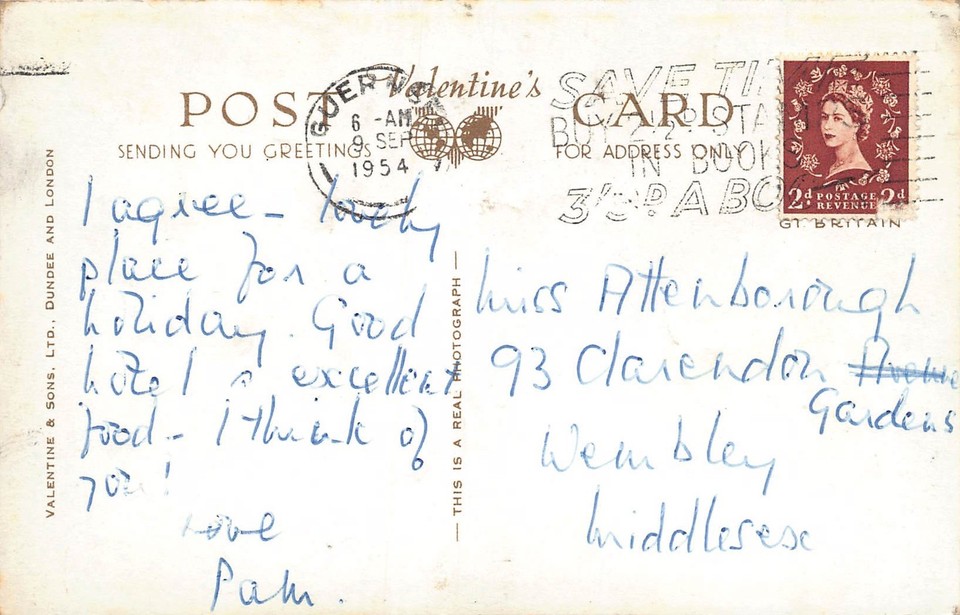 POST Valentine's CARD
SENDING YOU GREETINGS
FOR ADDRESS ONLY
6 - AM
9 SEP
1954
SAVE
BUY
IN BOOKS
A
2d POSTAGE 2d
REVENUE
GT. BRITAIN
VALENTINE & SONS, LTD., DUNDEE AND LONDON
I agree – lovely
place for a
holiday. Good
hotel & excellent
food – I think of
you!
Love
Pam.
— THIS IS A REAL PHOTOGRAPH —
Miss Attenborough
93 Clarendon Avenue
Gardens
Wembley
Middlesex